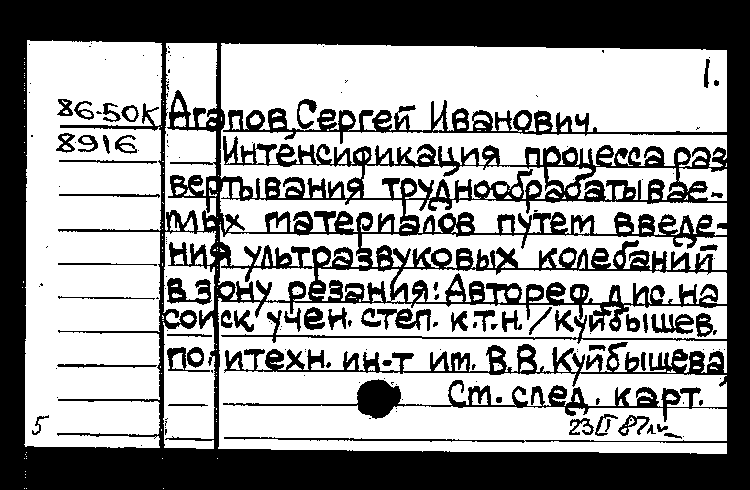 1.
86-50К Агапов Сергей Иванович.
8916 Интенсификация процесса раз
вертывания труднообрабатывае-
мых материалов путем введе-
ния ультразвуковых колебаний
в зону резания: Автореф. дис. на
соиск. учен. степ. к.т.н. / Куйбышев.
политехн. ин-т им. В.В. Куйбышева
Ст. след. карт.
5 23 II 87